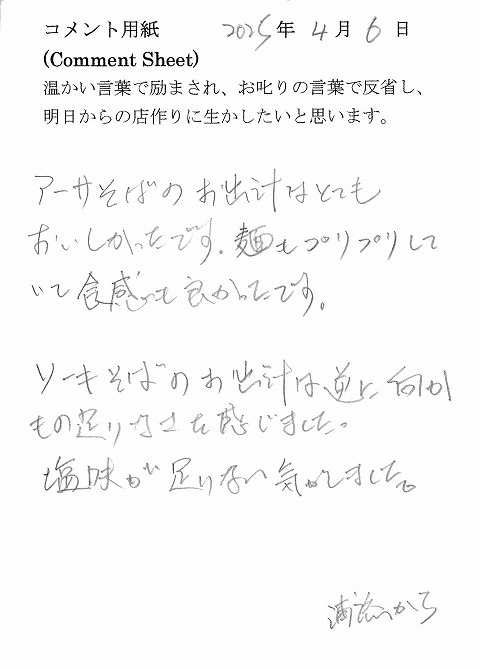 コメント用紙 2025年 4月 6日
(Comment Sheet)
温かい言葉で励まされ、お叱りの言葉で反省し、
明日からの店作りに生かしたいと思います。
アーサそばのお出汁はとても
おいしかったです。麺もプリプリして
いて食感も良かったです。
ソーキそばのお出汁は逆に何か
もの足りなさを感じました。
塩味が足りない気がしました。
浦添から